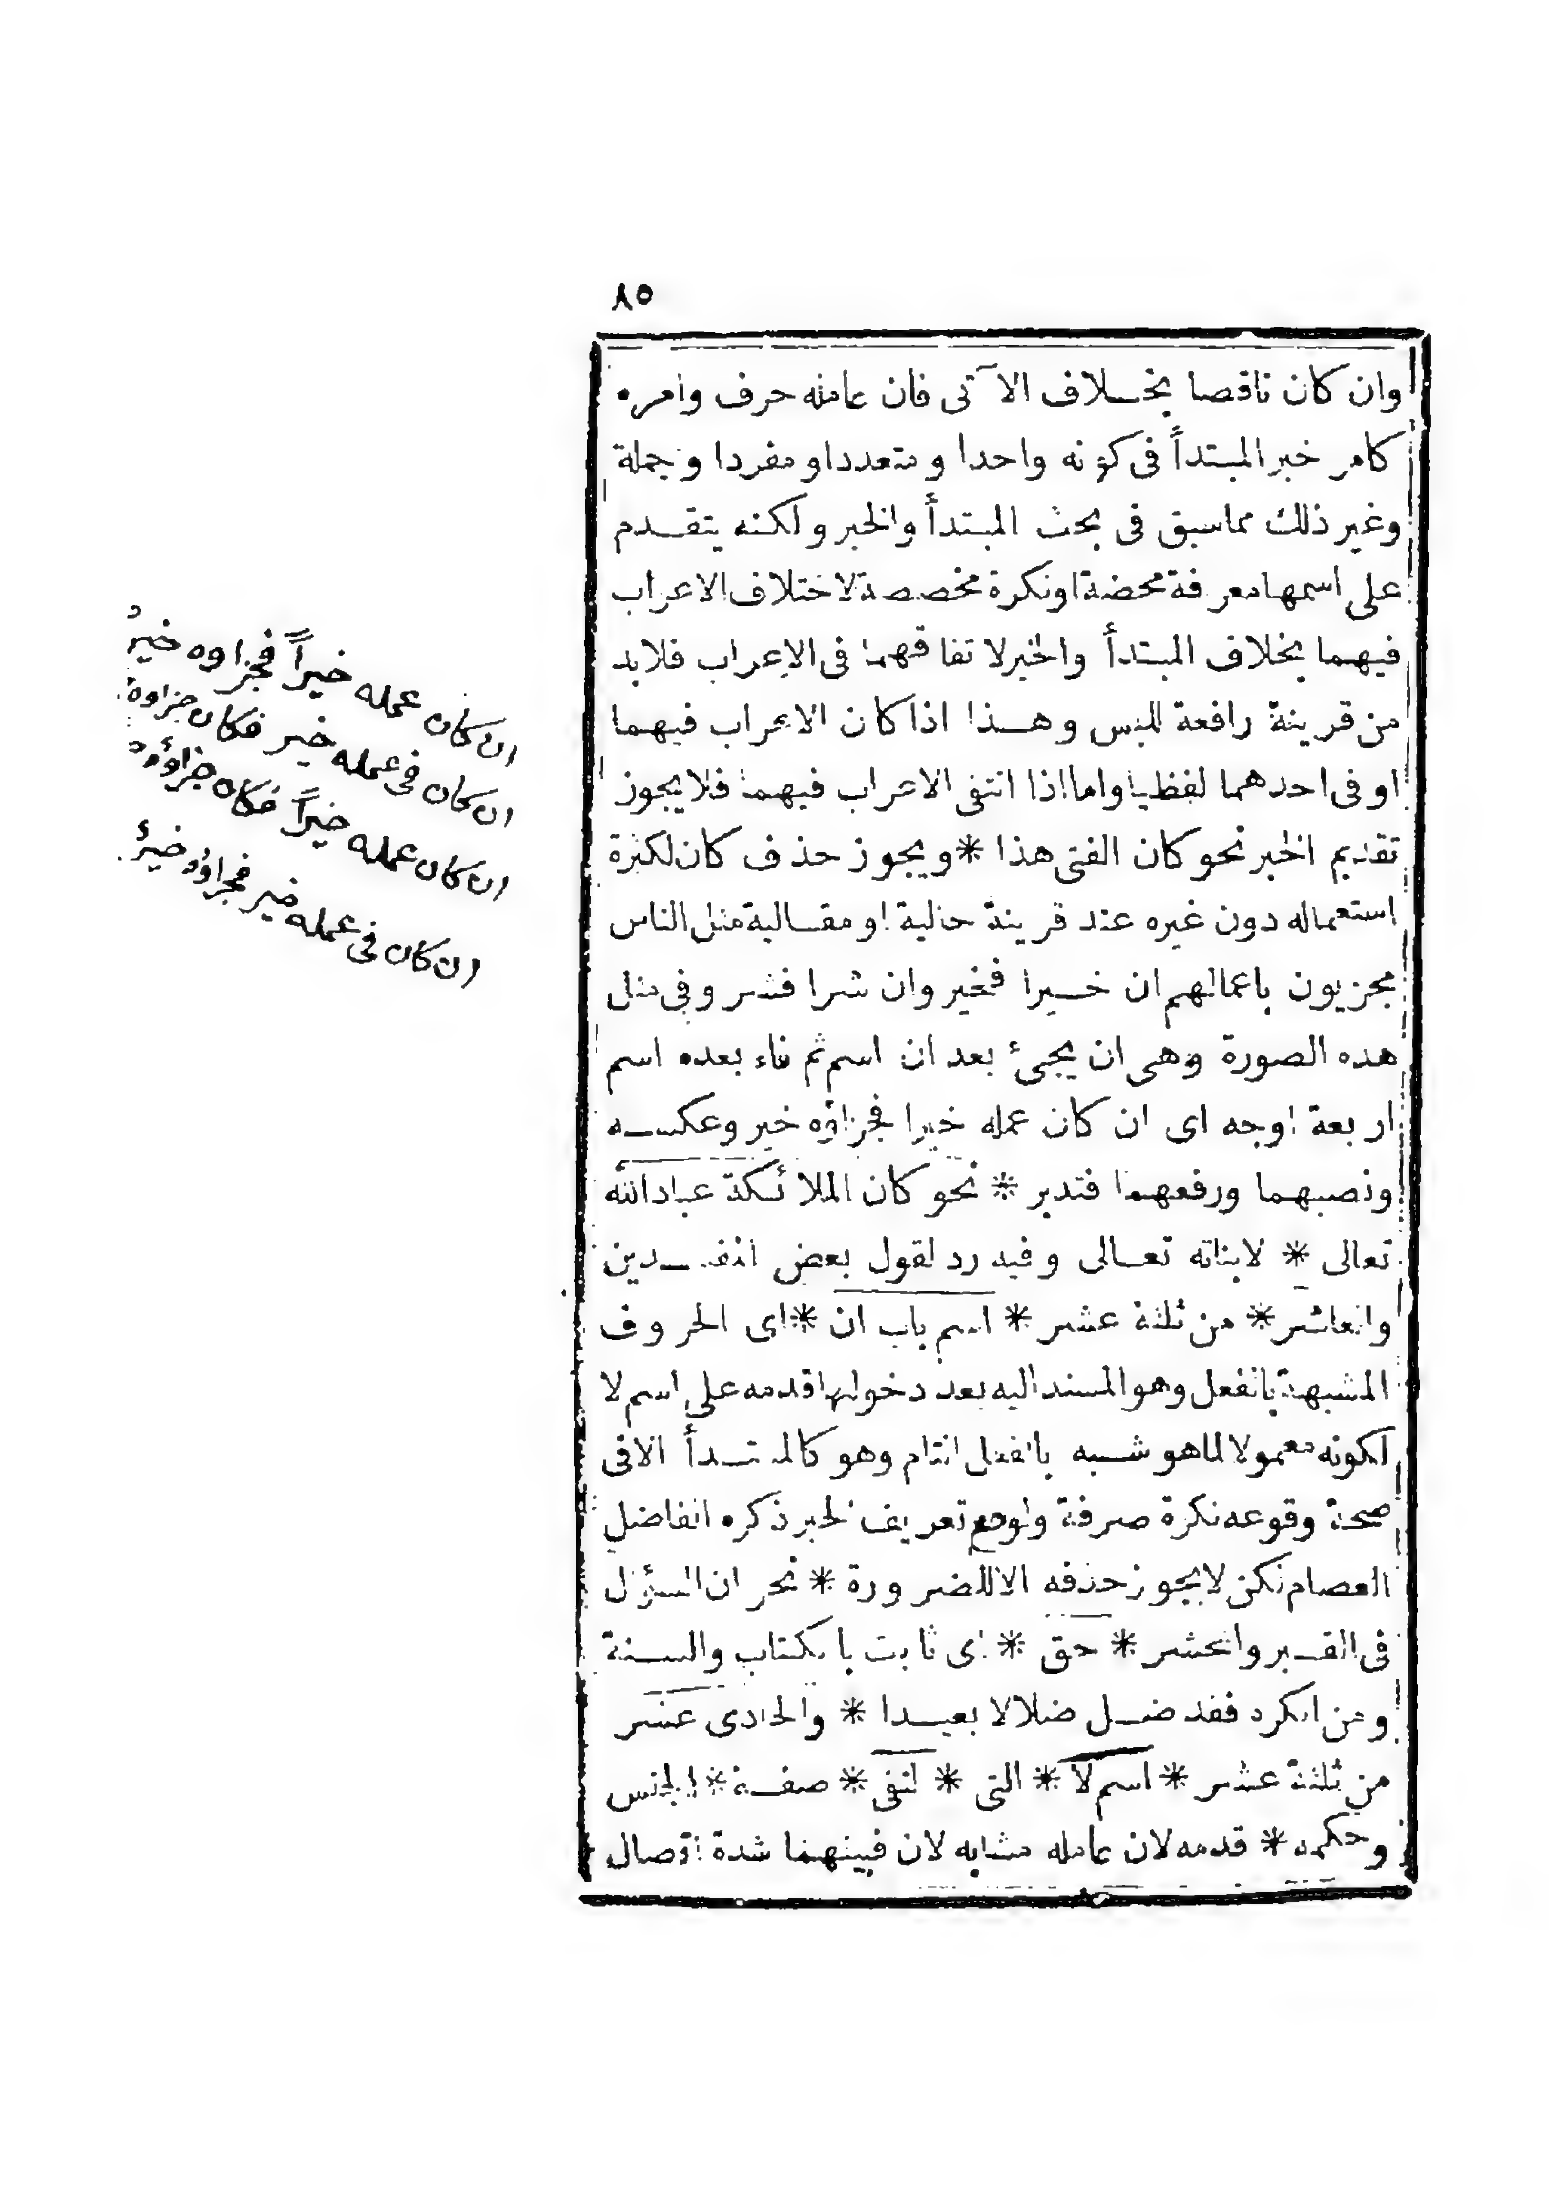 ٨٥
وان كان ناقصا بخلاف الآتى فان عامله حرف وامره
كامر خبر المبتدأ فى كونه واحدا ومتعددا ومفردا وجملة
وغير ذلك مماسبق فى بحث المبتدأ والخبر ولكنه يتقدم
على اسمها معرفة محضة اونكرة مخصصة لاختلاف الاعراب
فيهما بخلاف المبتدأ والخبر لاتفاقهما فى الاعراب فلابد
من قرينة رافعة للبس وهذا اذا كان الاعراب فيهما
اوفى احدهما لفظيا واما اذا انتفى الاعراب فيهما فلايجوز
تقديم الخبر نحو كان الفتى هذا * ويجوز حذف كان لكثرة
استعماله دون غيره عند قرينة حالية او مقالية مثل الناس
مجزيون باعمالهم ان خيرا فخير وان شرا فشر وفى مثل
هذه الصورة وهى ان يجىء بعد ان اسم ثم فاء بعده اسم
اربعة اوجه اى ان كان عمله خيرا فجزاؤه خير وعكسه
ونصبهما ورفعهما فتدبر * نحو كان الملائكة عباد الله
تعالى * لابناته تعالى وفيه رد لقول بعض
والعاشر * من ثلثة عشر * اسم باب ان * اى الحروف
المشبهة بالفعل وهو المسند اليه بعد دخولها قدمه على اسم لا
لكونه معمولا لماهو شبه بالفعل التام وهو كالمبتدأ الافى
صحة وقوعه نكرة صرفة ولومع تعريف الخبر ذكره الفاضل
العصام لكن لايجوز حذفه الاللضرورة * نحو ان السؤال
فى القبر والحشر * حق * اى ثابت بالكتاب والسنة
ومن انكره فقد ضل ضلالا بعيدا * والحادى عشر
من ثلثة عشر * اسم لا * التى * لنفى * صفة * الجنس
وحكمه * قدمه لان عامله مشابه لان فبينهما شدة اتصال
ان كان عمله خيراً فجزاوه خيرٌ
ان كان فى عمله خير فكان جزاوه
ان كان عمله خيراً فكان جزاؤه
ان كان فى عمله خير فجزاؤه خيرٌ